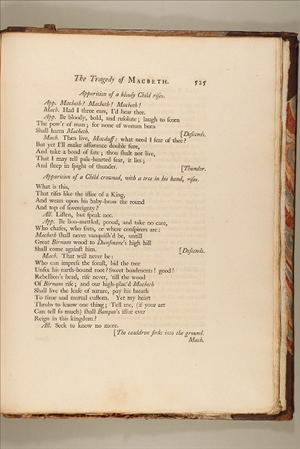 The Tragedy of MACBETH. 525
Apparition of a bloody Child rises.
App. Macbeth! Macbeth! Macbeth!
Mach. Had I three ears, I'd hear thee.
App. Be bloody, bold, and resolute; laugh to scorn
The pow'r of man; for none of woman born
Shall harm Macbeth. [Descends.
Mach. Then live, Macduff: what need I fear of thee?
But yet I'll make assurance double sure,
And take a bond of fate; thou shalt not live,
That I may tell pale-hearted fear, it lies;
And sleep in spight of thunder. [Thunder.
Apparition of a Child crowned, with a tree in his hand, rises.
What is this,
That rises like the issue of a King,
And wears upon his baby-brow the round
And top of sovereignty?
All. Listen, but speak not.
App. Be lion-mettled, proud, and take no care,
Who chafes, who frets, or where conspirers are:
Macbeth shall never vanquish'd be, until
Great Birnam wood to Dunsinane's high hill
Shall come against him. [Descends.
Mach. That will never be:
Who can impress the forest, bid the tree
Unfix his earth-bound root? Sweet boadments! good!
Rebellious head, rise never, 'till the wood
Of Birnam rise; and our high-plac'd Macbeth
Shall live the lease of nature, pay his breath
To time and mortal custom. Yet my heart
Throbs to know one thing; Tell me, (if your art
Can tell so much) shall Banquo's issue ever
Reign in this kingdom?
All. Seek to know no more.
[The cauldron sinks into the ground.
Mach.